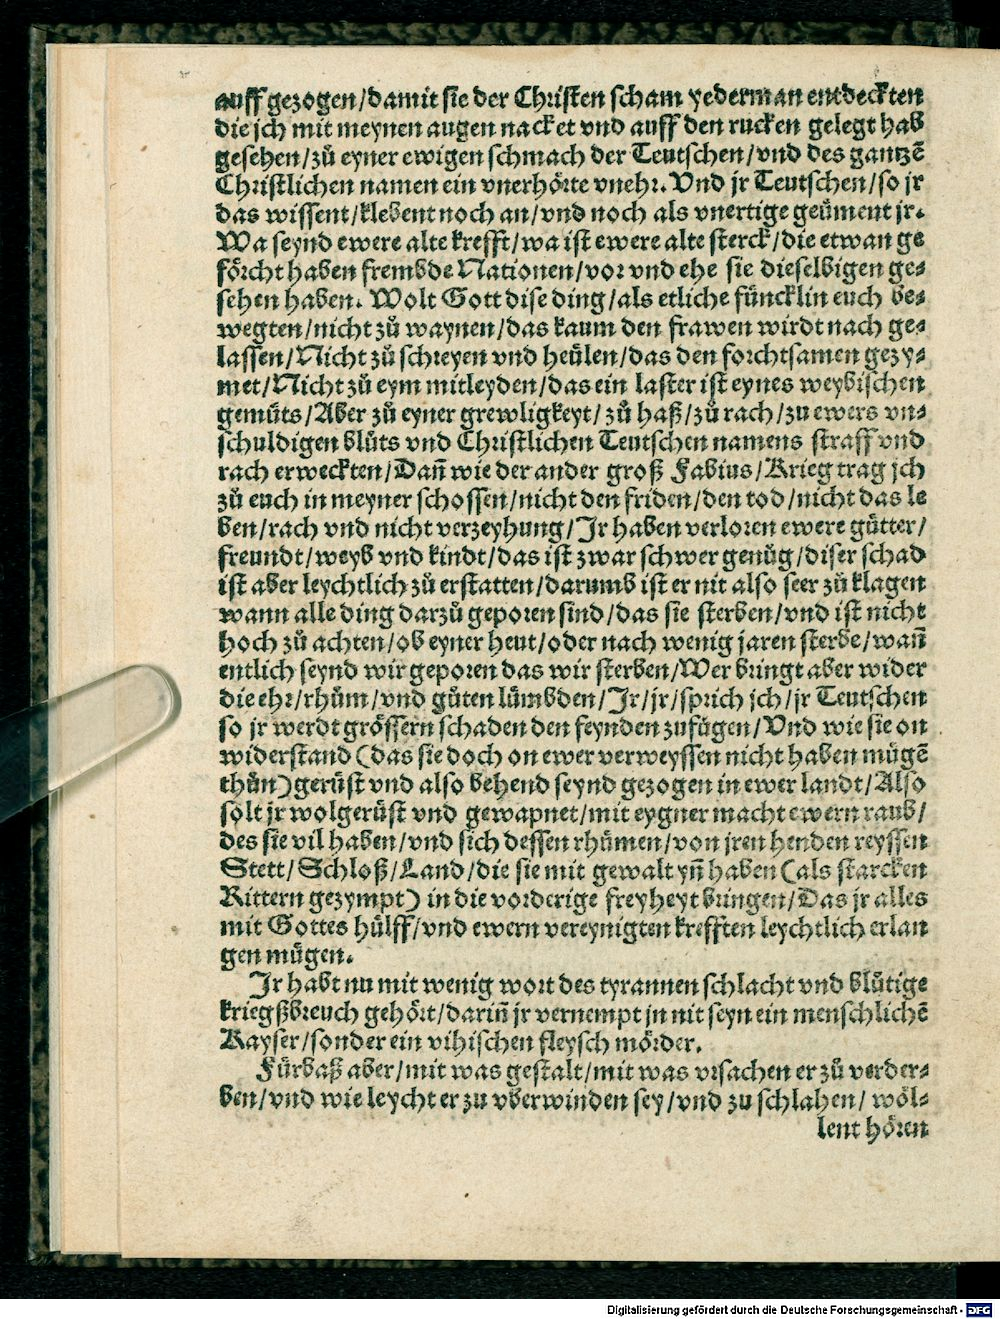 auff gezogen/damit sie der Christen scham yederman entdeckten
die jch mit meynen augen nacket vnd auff den rucken gelegt hab
gesehen/zů eyner ewigen schmach der Teutschen/vnd des gantzẽ
Christlichen namen ein vnerhörte vnehr. Vnd jr Teutschen/so jr
das wissent/klebent noch an/vnd noch als vnertige geüment jr.
Wa seynd ewere alte krefft/wa ist ewere alte sterck/die etwan ge
förcht haben frembde Nationen/vor vnd ehe sie dieselbigen ge⸗
sehen haben. Wolt Gott dise ding/als etliche füncklin euch be⸗
wegten/nicht zů waynen/das kaum den frawen wirdt nach ge⸗
lassen/Nicht zů schreyen vnd heülen/das den forchtsamen gezy⸗
met/Nicht zů eym mitleyden/das ein laster ist eynes weybischen
gemüts/Aber zů eyner grewligkeyt/zů haß/zů rach/zu ewers vn⸗
schuldigen blůts vnd Christlichen Teutschen namens straff vnd
rach erweckten/Dañ wie der ander groß Fabius/Krieg trag jch
zů euch in meyner schossen/nicht den friden/den tod/nicht das le
ben/rach vnd nicht verzeyhung/Jr haben verloren ewere gütter/
freundt/weyb vnd kindt/das ist zwar schwer genůg/diser schad
ist aber leychtlich zů erstatten/darumb ist er nit also seer zů klagen
wann alle ding darzů geporen sind/das sie sterben/vnd ist nicht
hoch zů achten/ob eyner heut/oder nach wenig jaren sterbe/wañ
entlich seynd wir geporen das wir sterben/Wer bringt aber wider
die ehr/rhům/vnd gůten lümbden/Jr/jr/sprich jch/jr Teutschen
so jr werdt grössern schaden den feynden zufügen/Vnd wie sie on
widerstand (das sie doch on ewer verweyssen nicht haben mügẽ
thůn) gerüst vnd also behend seynd gezogen in ewer landt/Also
solt jr wolgerüst vnd gewapnet/mit eygner macht ewern raub/
des sie vil haben/vnd sich dessen rhümen/von jren henden reyssen
Stett/Schloß/Land/die sie mit gewalt yñ haben (als starcken
Rittern gezympt) in die vorderige freyheyt bringen/Das jr alles
mit Gottes hülff/vnd ewern vereynigten krefften leychtlich erlan
gen mügen.
Jr habt nu mit wenig wort des tyrannen schlacht vnd blůtige
kriegßbreuch gehört/dariñ jr vernempt jn nit seyn ein menschlichẽ
Kayser/sonder ein vihischen fleysch mörder.
Fürbaß aber/mit was gestalt/mit was vrsachen er zů verder⸗
ben/vnd wie leycht er zu vberwinden sey/vnd zu schlahen/wöl⸗
lent hören
Digitalisierung gefördert durch die Deutsche Forschungsgemeinschaft - DFG